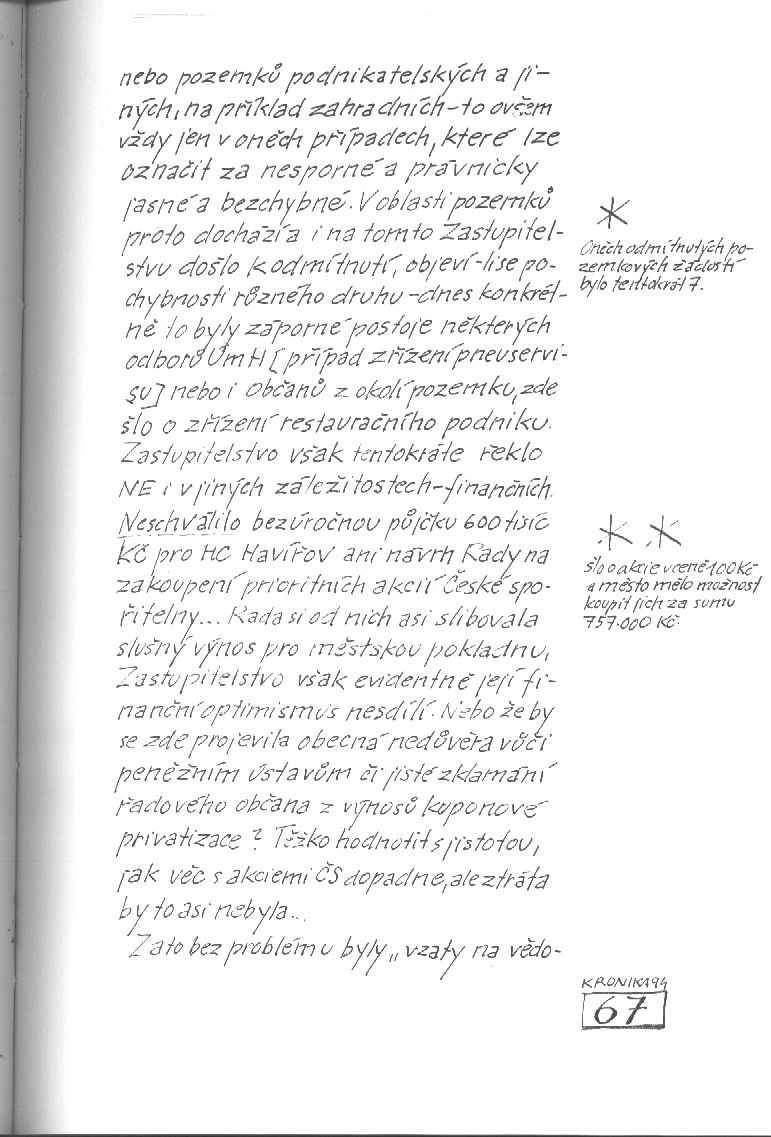 nebo pozemků podnikatelských a ji-
ných, na příklad zahradních - to ovšem
vždy jen v oněch případech, které lze
označit za nesporné a právnicky
jasné a bezchybné. V oblasti pozemků
proto dochází a i na tomto Zastupitel-
stvu došlo k odmítnutí, objeví-li se po-
chybnosti různého druhu - dnes konkrét-
ně to byly záporné postoje některých
odborů ÚmH [případ zřízení pneuservi-
su] nebo i občanů z okolí pozemku, zde
šlo o zřízení restauračního podniku.
Zastupitelstvo však tentokráte řeklo
NE i v jiných záležitostech - finančních.
Neschválilo bezúročnou půjčku 600 tisíc
Kč pro HC Havířov ani návrh Rady na
zakoupení prioritních akcií České spo-
řitelny... Rada si od nich asi slibovala
slušný výnos pro městskou pokladnu,
Zastupitelstvo však evidentně její fi-
nanční optimismus nesdílí. Nebo že by
se zde projevila obecná nedůvěra vůči
peněžním ústavům či jisté zklamání
řadového občana z výnosů kuponové
privatizace? Těžko hodnotit s jistotou,
jak věc s akciemi ČS dopadne, ale ztráta
by to asi nebyla...
Zato bez problému byly „vzaty na vědo-
*
Oněch odmítnutých po-
zemkových žádostí
bylo tentokrát 7.
* *
šlo o akcie v ceně 100 Kč
a město mělo možnost
koupit jich za sumu
757.000 Kč.
KRONIKA94
67